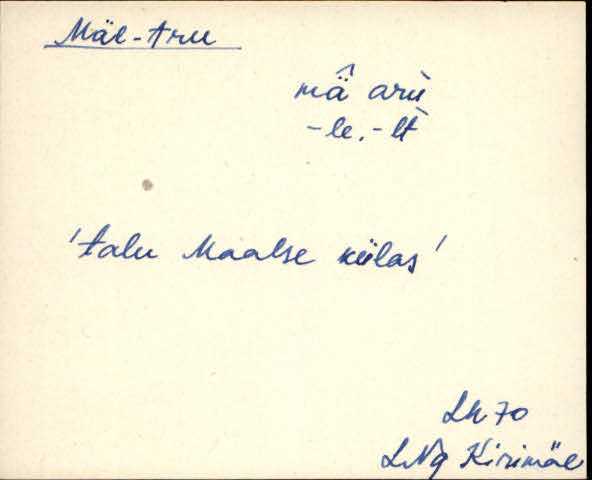 Mäe-Aru
mä̂ arù
-le, -lt̀
'talu Maalse külas'
Lh 70
LNg Kirimäe